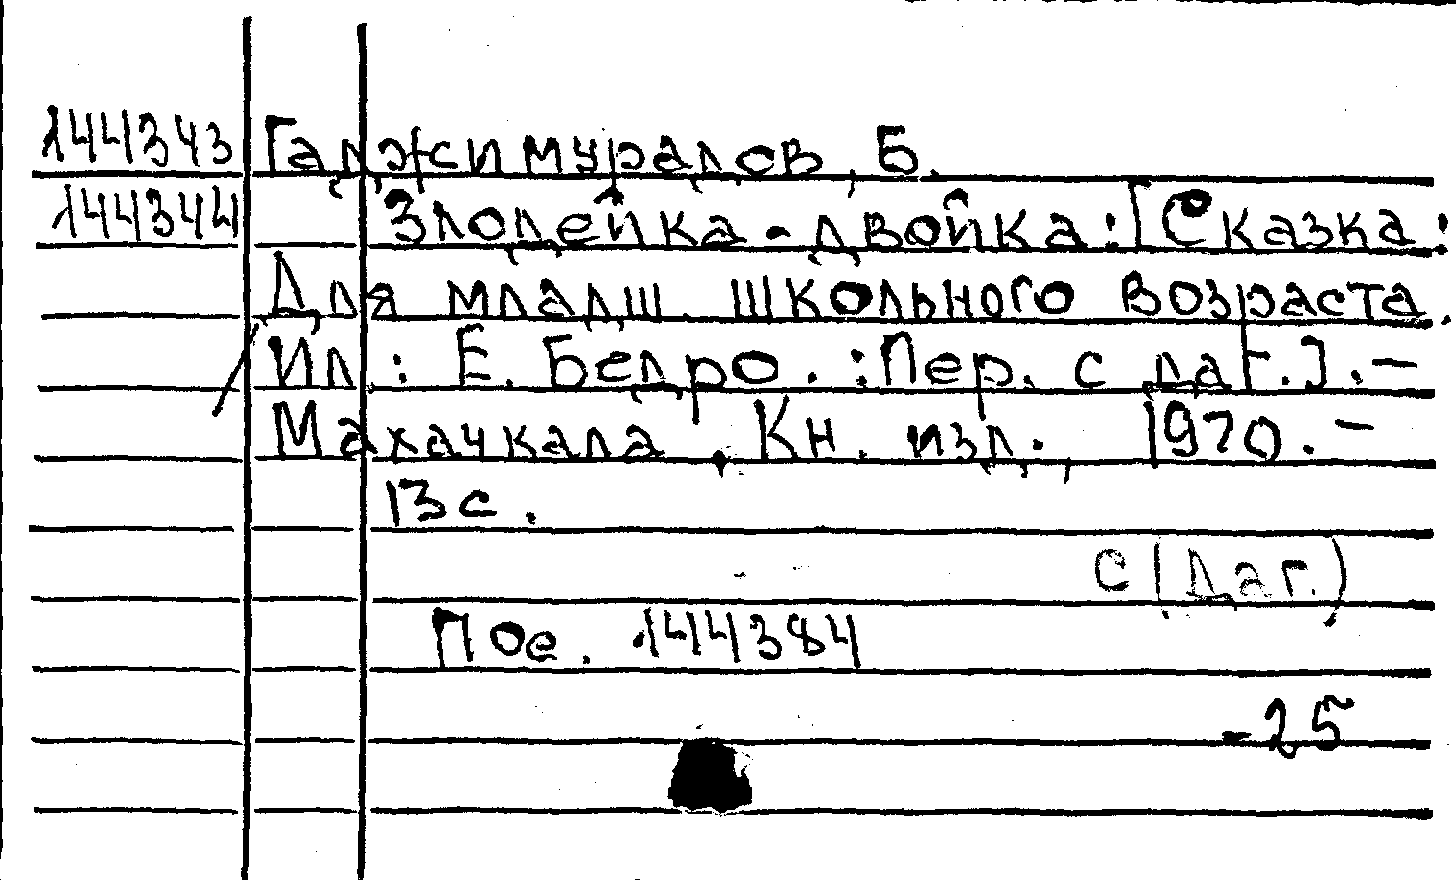 144343 Гаджимурадов, Б.
144344 Злодейка-двойка: [Сказка:
Для младш. школьного возраста.
Ил.: Е. Бедро. : Пер. с даг.]. –
Махачкала, Кн. изд., 1970. –
13с.
С(Даг.)
Пое. 144384
-25